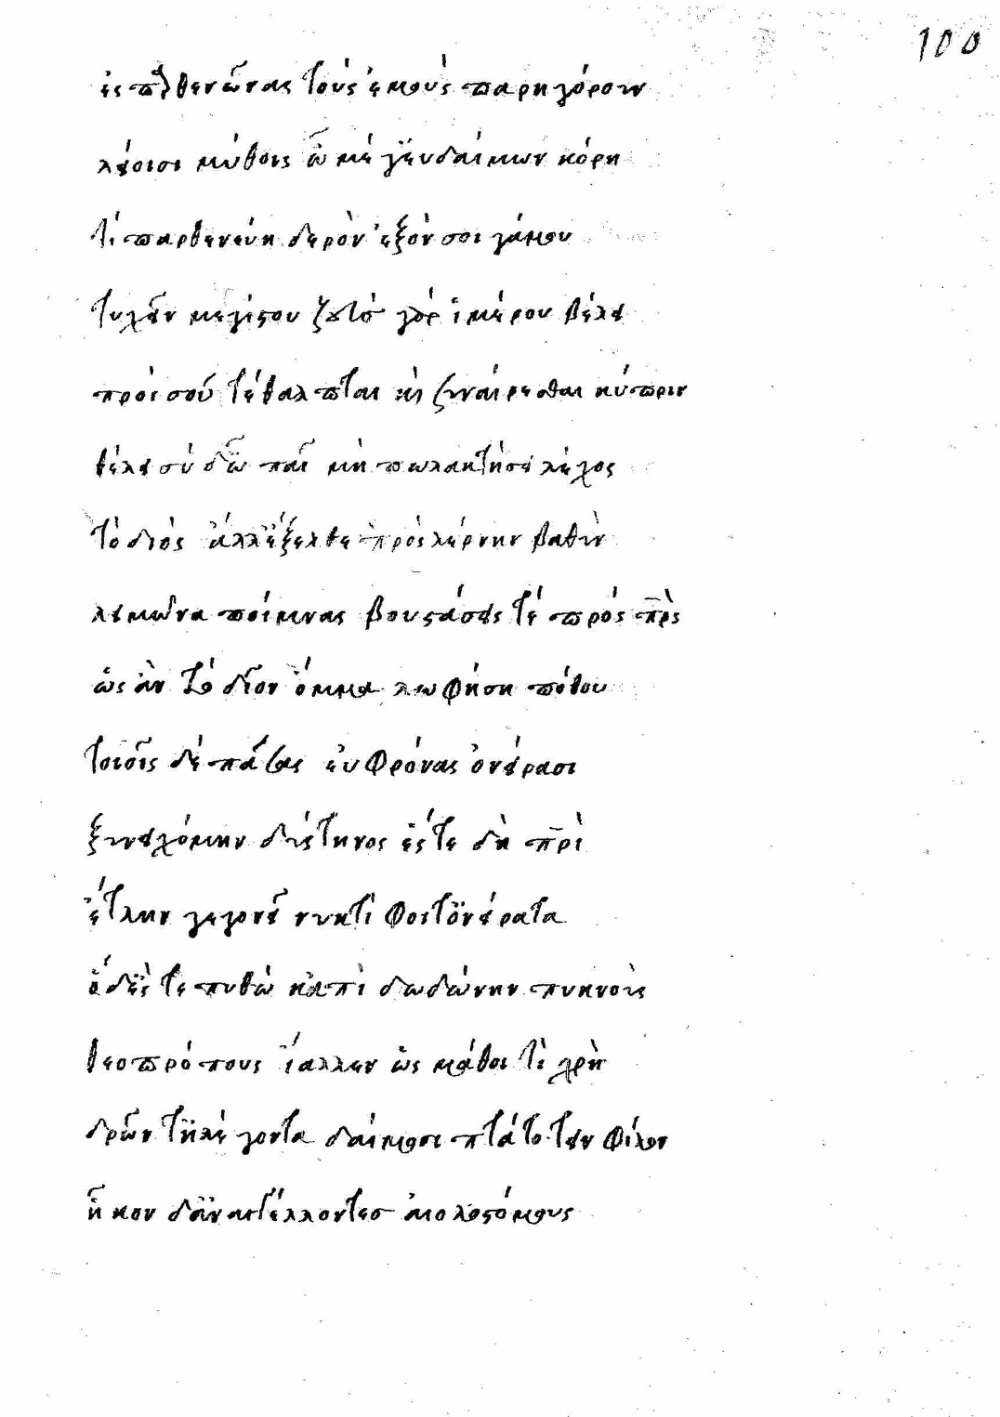 100
ἐς παρθενῶνας τοὺς ἐμοὺς παρηγόρουν
λείοισι μύθοις ὦ μέγ' εὔδαιμον κόρη
τί παρθενεύη δερὸν ἐξόν σοι γάμου
τυχεῖν μεγίστου ζεὺς γὰρ ἱμέρου βέλει
πρὸς σοῦ τέθαλπται καὶ ξυναίρεσθαι κύπριν
θέλει σὺ δ' ὦ παῖ μὴ πωλακτήσει λέχος
τὸ διὸς ἀλλ' ἔξελθε πρὸς λέρνην βαθὺν
λειμῶνα ποίμνας βουστάσεις τὲ πρὸς πρς
ὡς ἂν τὸ δῖον ὄμμα λωφήση πόθου
τοιοῖσδε πάσας εὐφρόνας ὀνείρασι
ξυνειχόμην δύστηνος ἔστε δὴ πρὶ
ἔτλην γεγονεῖ νυκτὶ φοιτ' ὀνείρατα
ὁ δ' ἔς τε πυθὼ κἀπὶ δωδώνην πυκνοὺς
θεοπρόπους ἴαλλεν ὡς μάθοι τὶ χρὴ
δρῶντ' ἢ λέγοντα δαίμοσι πτάτοτειν φίλον
ἧκον δ' ἀναγγέλλοντες αἰολοστόμους